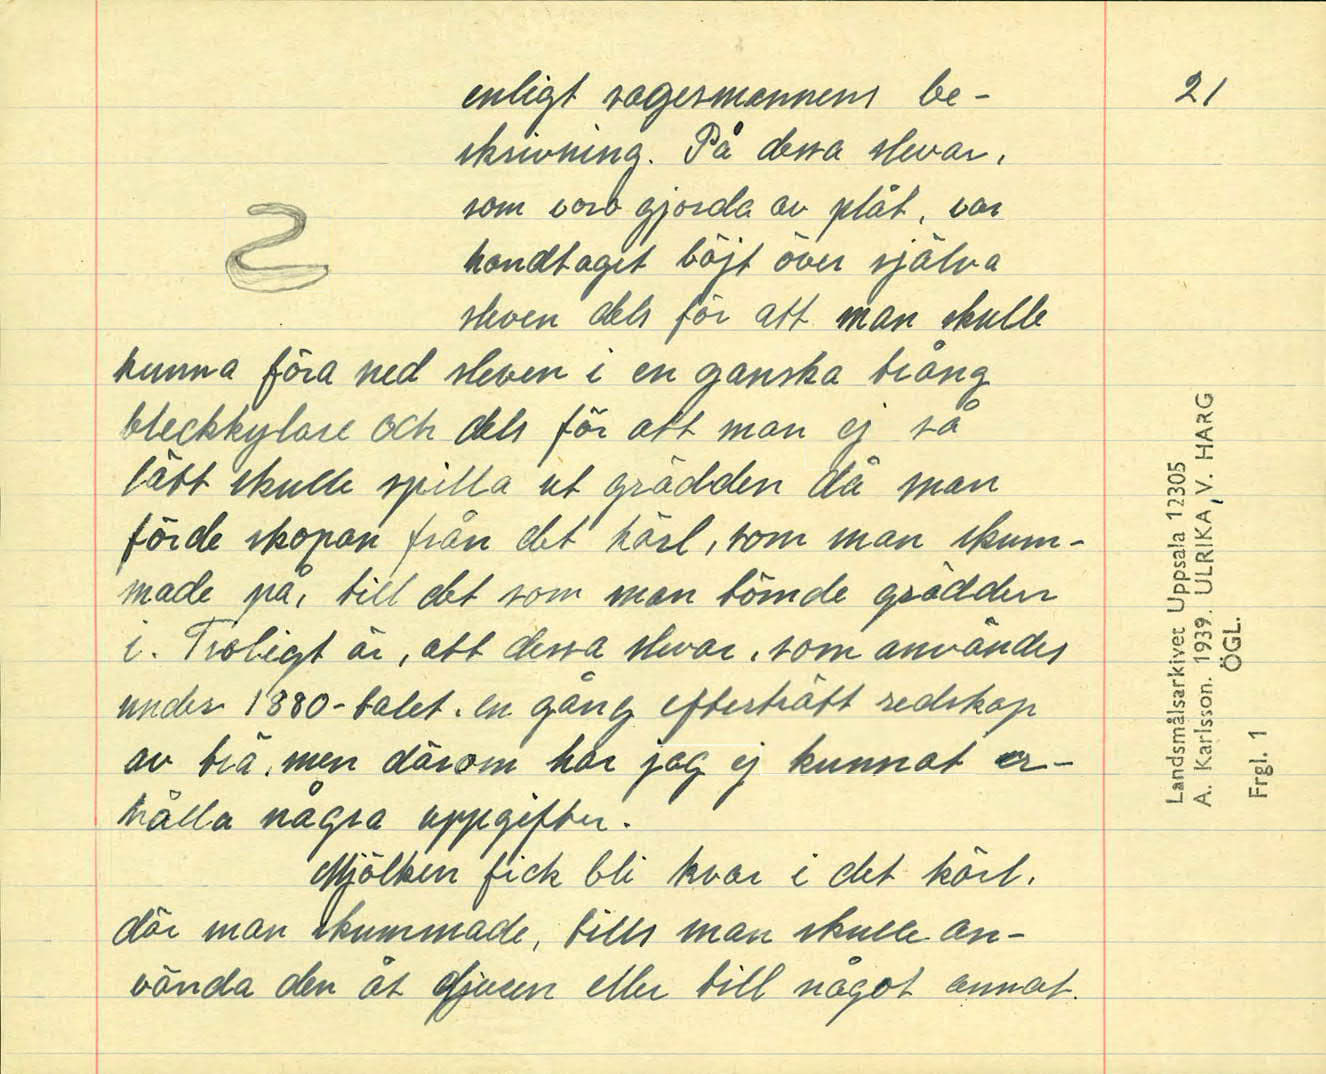 21
enligt sagesmannens be-
skrivning. På dessa slevar,
som voro gjorda av plåt, var
handtaget böjt över själva
sleven dels för att man skulle
kunna föra ned sleven i en ganska trång
bleckkylare och dels för att man ej så
lätt skulle spilla ut grädden då man
förde skopan från det kärl, som man skum-
made på, till det som man tömde grädden
i. Troligt är, att dessa slevar, som användes
under 1880-talet, en gång efterträtt redskap
av trä, men därom har jag ej kunnat er-
hålla några uppgifter.
Mjölken fick bli kvar i det kärl,
där man skummade, tills man skulle an-
vända den åt djuren eller till något annat.
Landsmålsarkivet Uppsala 12305
A. Karlsson. 1939. ULRIKA, V. HARG
ÖGL.
Frgl. 1